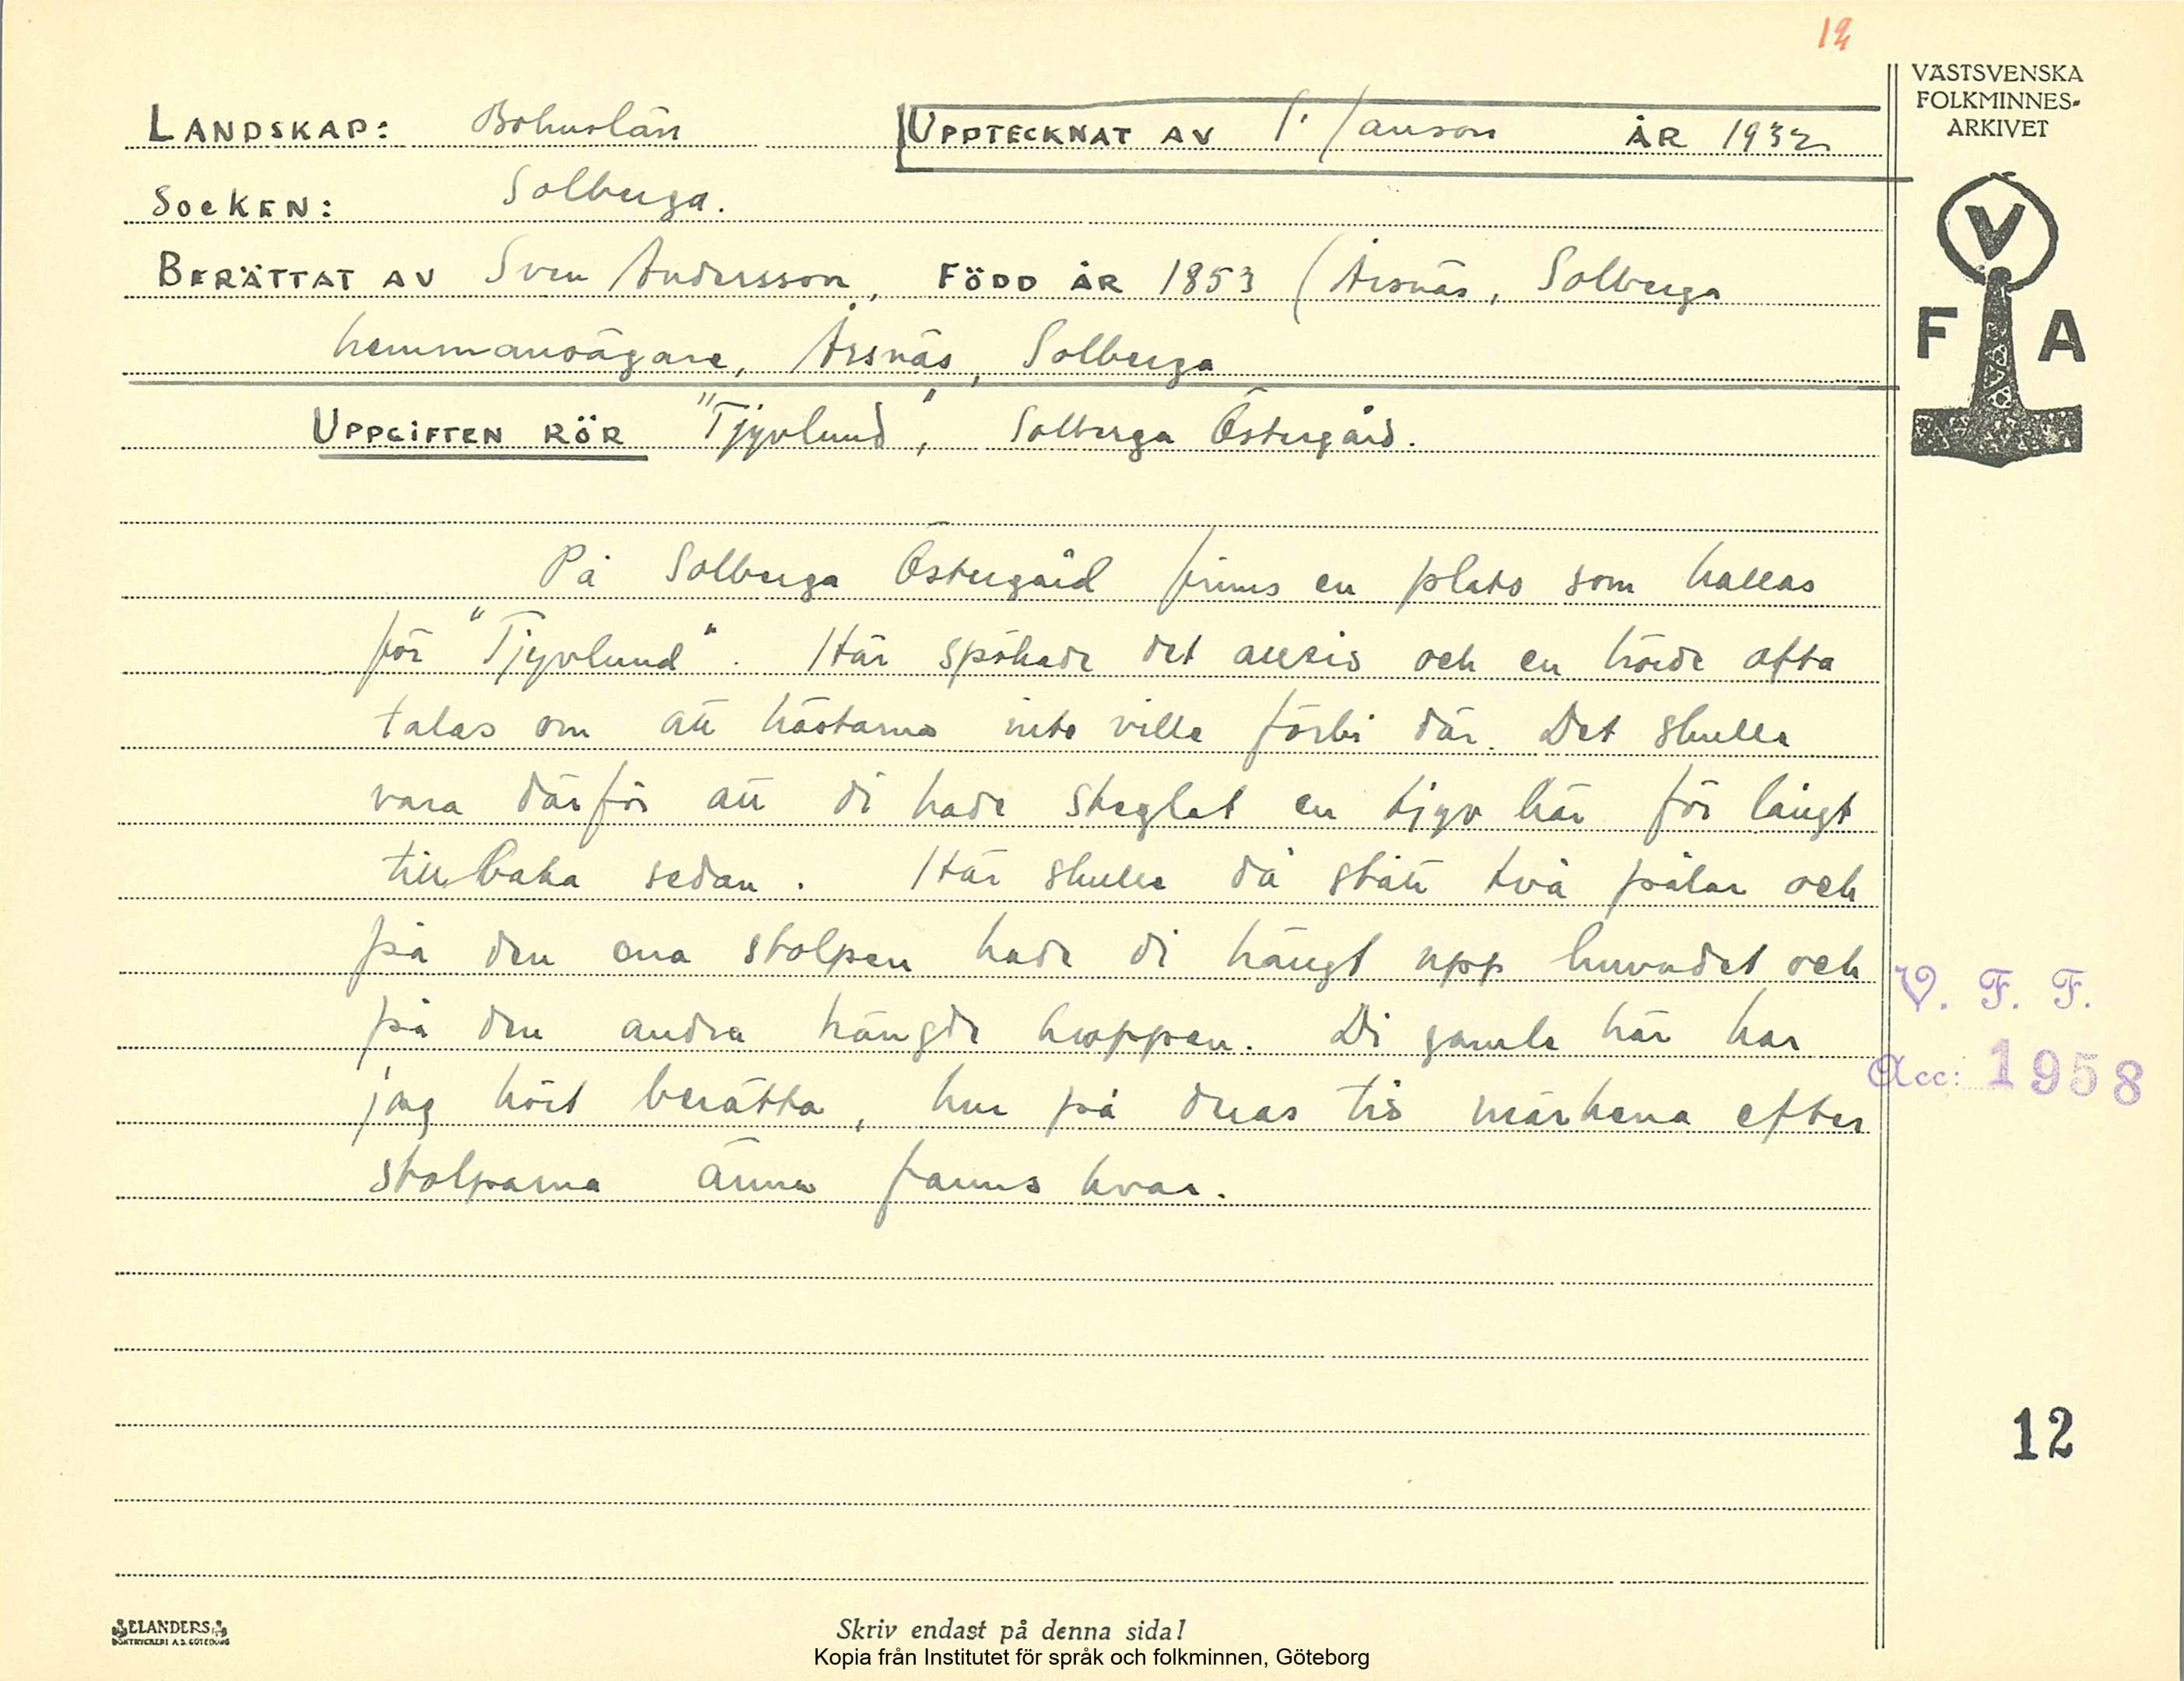 12
VÄSTSVENSKA
FOLKMINNES-
ARKIVET
LANDSKAP: Bohuslän
UPPTECKNAT AV Janson ÅR 1932
SOCKEN: Solberga.
BERÄTTAT AV Sven Andersson, FÖDD ÅR 1853 (Årsnäs, Solberga
hemmansägare, Årsnäs, Solberga
UPPGIFTEN RÖR "Tjyvlund", Solberga Östergård.
V
F A
På Solberga Östergård finns en plats som kallas
för "Tjyvlund". Här spökade det alltid och en hörde ofta
talas om att hästarna inte ville förbi där. Det skulle
vara därför att di hade steglat en tjyv här för längt
tillbaka sedan. Här skulle då stått två pålar och
på den ena stolpen hade di hängt upp huvudet och
på den andra hängde kroppen. Di gamle här har
jag hört berätta, hur på deras tis märkena efter
stolparna änna fanns kvar.
V. F. F.
Acc: 1958
12
ELANDERS
BOKTRYCKERI A.B. GÖTEBORG
Skriv endast på denna sida!
Kopia från Institutet för språk och folkminnen, Göteborg